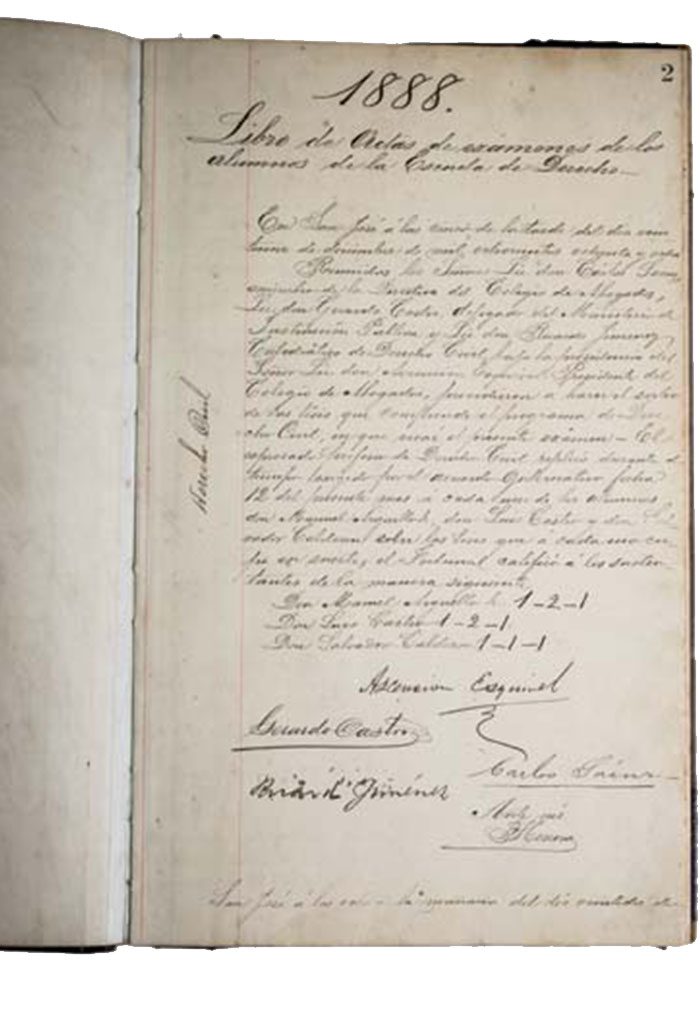 2
1888.
Libro de Actas de exámenes de los
alumnos de la Escuela de Derecho
En San José á las cinco de la tarde del día vein
tiuno de diciembre de mil ochocientos ochenta y ocho
Reunidos los Señores Lic don Carlos Saenz
miembro de la Directiva del Colegio de Abogados,
Lic. don Gerardo Castro, delegado del Ministerio de
Instrucción Publica y Lic don Ricardo Jimenez,
Catedrático de Derecho Civil, bajo la presidencia del
Señor Lic. don Ascensión Esquivel Presidente del
Colegio de Abogados, procedieron a hacer el sorteo
de las tesis que comprende el programa de Dere
cho Civil, en que versa el presente exámen - El
expresado profesor de Derecho Civil replicó durante el
tiempo fijado por el acuerdo gubernativo fecha
12 del presente mes a cada uno de los alumnos
don Manuel Arguello h, don Luis Castro y don Sal
vador Calderon sobre las tesis que a cada uno cu
po en suerte, y el Tribunal calificó á los susten
tantes de la manera siguiente.
Derecho Civil
Don Manuel Arguello h. 1-2-1
Don Luis Castro 1-2-1
Don Salvador Calderon 1-1-1
Ascension Esquivel
Gerardo Castro
Carlos Sáenz
Ricard Jiménez
Ante mí
San José á las de la mañana del día veintidos de